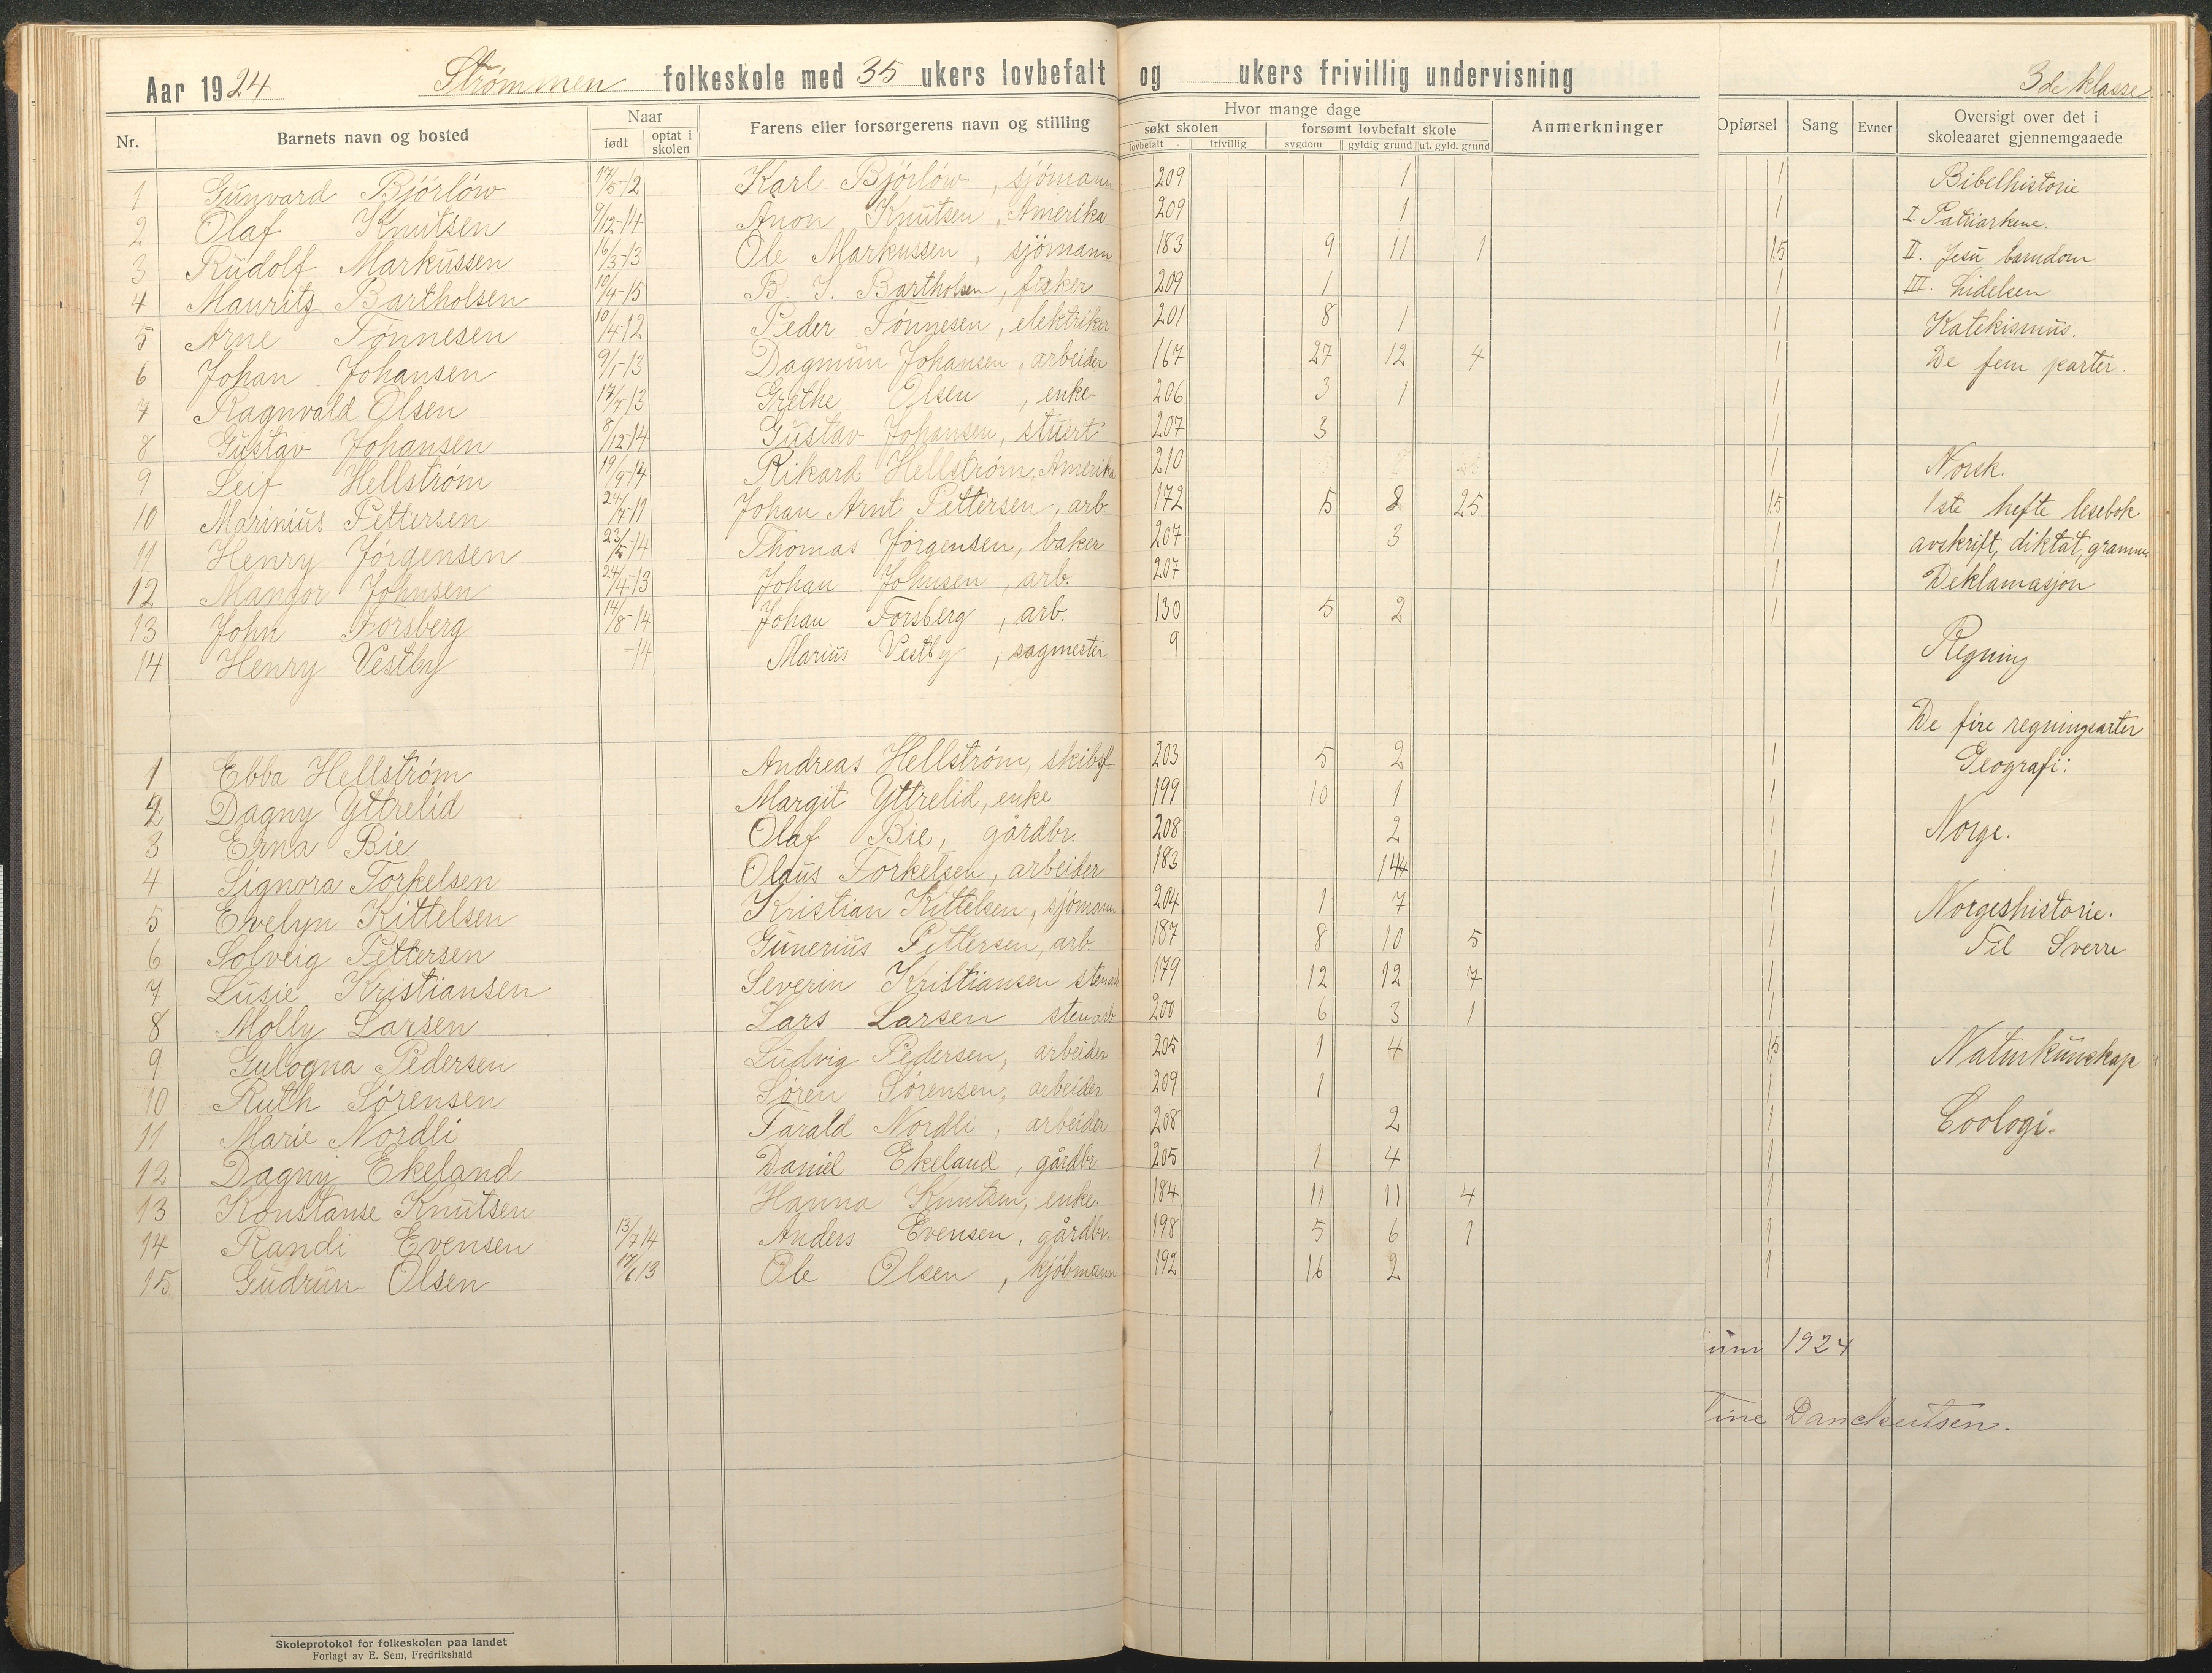 Aar 1924 Strømmen folkeskole med 35 ukers lovbefalt og ukers frivillig undervisning 3de klasse
Nr. Barnets navn og bosted Naar født optat i skolen Farens eller forsørgerens navn og stilling Hvor mange dage søkt skolen lovbefalt frivillig forsømt lovbefalt skole sygdom gyldig grund ut. gyld. grund Anmerkninger Opførsel Sang Evner Oversigt over det i skoleaaret gjennemgaaede
1 Gunvard Bjørløw 17/5-12 Karl Bjørløw, sjömann 209 1 1 Bibelhistorie
2 Olaf Knutsen 9/12-14 Anon Knutsen, Amerika 209 1 1 I. Patriarkene.
3 Rudolf Markussen 16/3-13 Ole Markussen, sjömann 183 9 11 1 1,5 II. Jesu barndom
4 Maurits Bartholsen 10/4-15 B. J. Bartholsen, fisker 209 1 1 III. Lidelsen
5 Arne Tønnesen 10/4-12 Peder Tønnesen, elektriker 201 8 1 1 Katekismus.
6 Johan Johansen 9/1-13 Dagmun Johansen, arbeider 167 27 12 4 1 De fem parter.
7 Ragnvald Olsen 17/7-13 Grethe Olsen, enke 206 3 1 1
8 Gustav Johansen 8/12-14 Gustav Johansen, stuert 207 3 1
9 Leif Hellstrøm 19/9-14 Rikard Hellstrøm, Amerika 210 1 Norsk.
10 Marinius Pettersen 24/7-11 Johan Arnt Pettersen, arb 172 5 8 25 1,5 1ste hefte lesebok
11 Henry Jørgensen 23/5-14 Thomas Jørgensen, baker 207 3 1 avskrift, diktat, gramm.
12 Mangor Johnsen 24/4-13 Johan Johnsen, arb. 207 1 Deklamasjon
13 John Forsberg 14/8-14 Johan Forsberg, arb. 130 5 2 1
14 Henry Vestby -14 Marius Vestby, sagmester 9 Regning
De fire regningsarter
1 Ebba Hellstrøm Andreas Hellstrøm, skibsf 203 5 2 1 Geografi:
2 Dagny Yttrelid Margit Yttrelid, enke 199 10 1 1
3 Erna Bie Olaf Bie, gårdbr. 208 2 1 Norge.
4 Signora Torkelsen Olaus Torkelsen, arbeider 183 14 1
5 Evelyn Kittelsen Kristian Kittelsen, sjömann 204 1 7 1 Norgeshistorie.
6 Solveig Pettersen Gunerius Pettersen, arb. 187 8 10 5 1 Til Sverre
7 Lusie Kristiansen Severin Kristiansen stenarb 179 12 12 7 1
8 Molly Larsen Lars Larsen stenarb 200 6 3 1 1
9 Gulogna Pedersen Ludvig Pedersen, arbeider 205 1 4 1,5 Naturkunskap
10 Ruth Sørensen Søren Sørensen, arbeider 209 1 1
11 Marie Nordli Tarald Nordli, arbeider 208 2 1 Zoologi.
12 Dagny Ekeland Daniel Ekeland, gårdbr 205 1 4 1
13 Konstanse Knutsen Hanna Knutsen, enke. 184 11 11 4 1
14 Randi Evensen 13/7 14 Anders Evensen, gårdbr. 198 5 6 1 1
15 Gudrun Olsen 17/6 13 Ole Olsen, kjöbmann 192 16 2 1
juni 1924
tine Danckertsen.
Skoleprotokol for folkeskolen paa landet
Forlagt av E. Sem, Fredrikshald